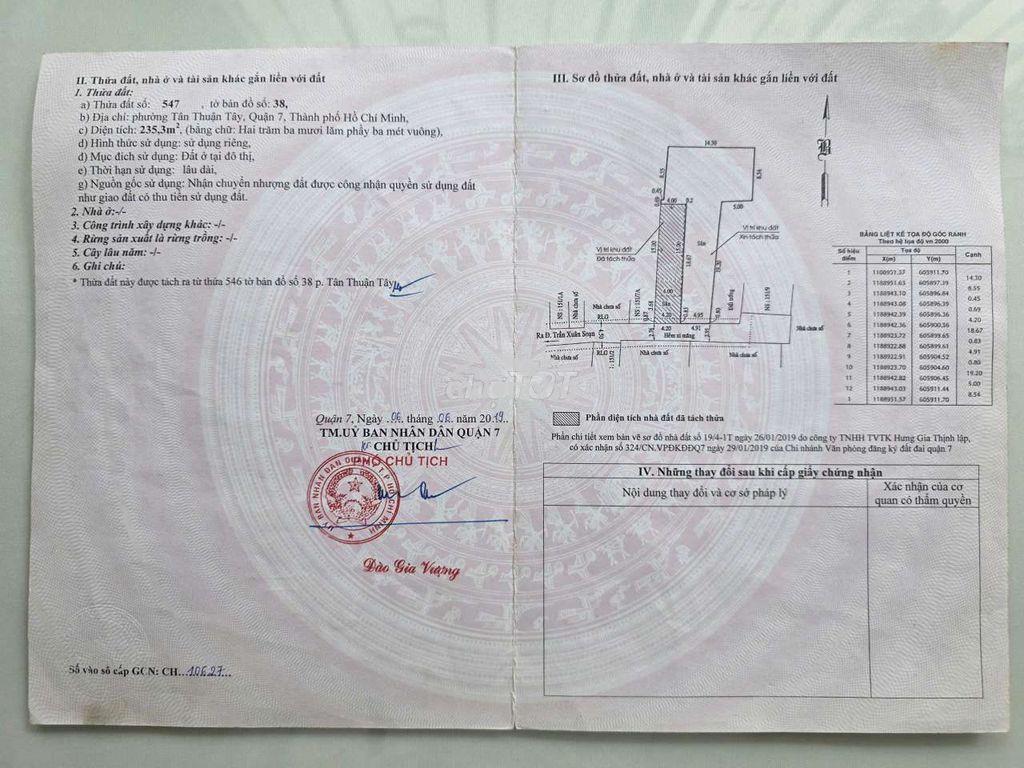 II. Thửa đất, nhà ở và tài sản khác gắn liền với đất
1. Thửa đất:
a) Thửa đất số: 547 , tờ bản đồ số: 38,
b) Địa chỉ: phường Tân Thuận Tây, Quận 7, Thành phố Hồ Chí Minh,
c) Diện tích: 235,3m², (bằng chữ: Hai trăm ba mươi lăm phẩy ba mét vuông),
d) Hình thức sử dụng: sử dụng riêng,
đ) Mục đích sử dụng: Đất ở tại đô thị,
e) Thời hạn sử dụng: lâu dài,
g) Nguồn gốc sử dụng: Nhận chuyển nhượng đất được công nhận quyền sử dụng đất
như giao đất có thu tiền sử dụng đất.
2. Nhà ở:-/-
3. Công trình xây dựng khác: -/-
4. Rừng sản xuất là rừng trồng: -/-
5. Cây lâu năm: -/-
6. Ghi chú:
* Thửa đất này được tách ra từ thửa 546 tờ bản đồ số 38 p. Tân Thuận Tây
Quận 7, Ngày 06 tháng 06 năm 2019
TM.UỶ BAN NHÂN DÂN QUẬN 7
CHỦ TỊCH
PHÓ CHỦ TỊCH
UỶ BAN NHÂN DÂN QUẬN 7 T.P HỒ CHÍ MINH
Đào Gia Vượng
Số vào sổ cấp GCN: CH...10627...
III. Sơ đồ thửa đất, nhà ở và tài sản khác gắn liền với đất
B
14.30
8.55
8.56
0.45
0.69
4.00
0.2
5.00
Vị trí khu đất
Đã tách thửa
Vị trí khu đất
Xin tách thửa
15.00
15.00
18.67
19.20
Sân
Sân
NS: 151/1A
Nhà chưa số
NS: 157/7A
Đất trống
NS: 151/9
RLG
4.20
4.95
0.83
0.80
4.20
4.91
Hẻm xi măng
Nhà chưa số
Ra Đ. Trần Xuân Soạn
Nhà chưa số
RLG
: 151/2
Nhà chưa số
Nhà chưa số
BẢNG LIỆT KÊ TỌA ĐỘ GÓC RANH
Theo hệ tọa độ vn 2000
Số hiệu điểm Tọa độ Cạnh
X(m) Y(m)
1 1188951.37 605911.70
14.30
2 1188951.65 605897.39
8.55
3 1188943.10 605896.84
0.45
4 1188943.08 605896.39
0.69
5 1188942.39 605896.36
4.20
6 1188942.36 605900.36
18.67
7 1188923.72 605899.65
0.83
8 1188922.88 605899.61
4.91
9 1188922.91 605904.52
0.80
10 1188923.70 605904.60
19.20
11 1188942.82 605906.45
5.00
12 1188943.03 605911.44
8.56
1 1188951.57 605911.70
Phần diện tích nhà đất đã tách thửa
Phần chi tiết xem bản vẽ sơ đồ nhà đất số 19/4-1T ngày 26/01/2019 do công ty TNHH TVTK Hưng Gia Thịnh lập,
có xác nhận số 324/CN.VPĐKĐĐQ7 ngày 29/01/2019 của Chi nhánh Văn phòng đăng ký đất đai quận 7
IV. Những thay đổi sau khi cấp giấy chứng nhận
Nội dung thay đổi và cơ sở pháp lý
Xác nhận của cơ
quan có thẩm quyền
chợTỐT